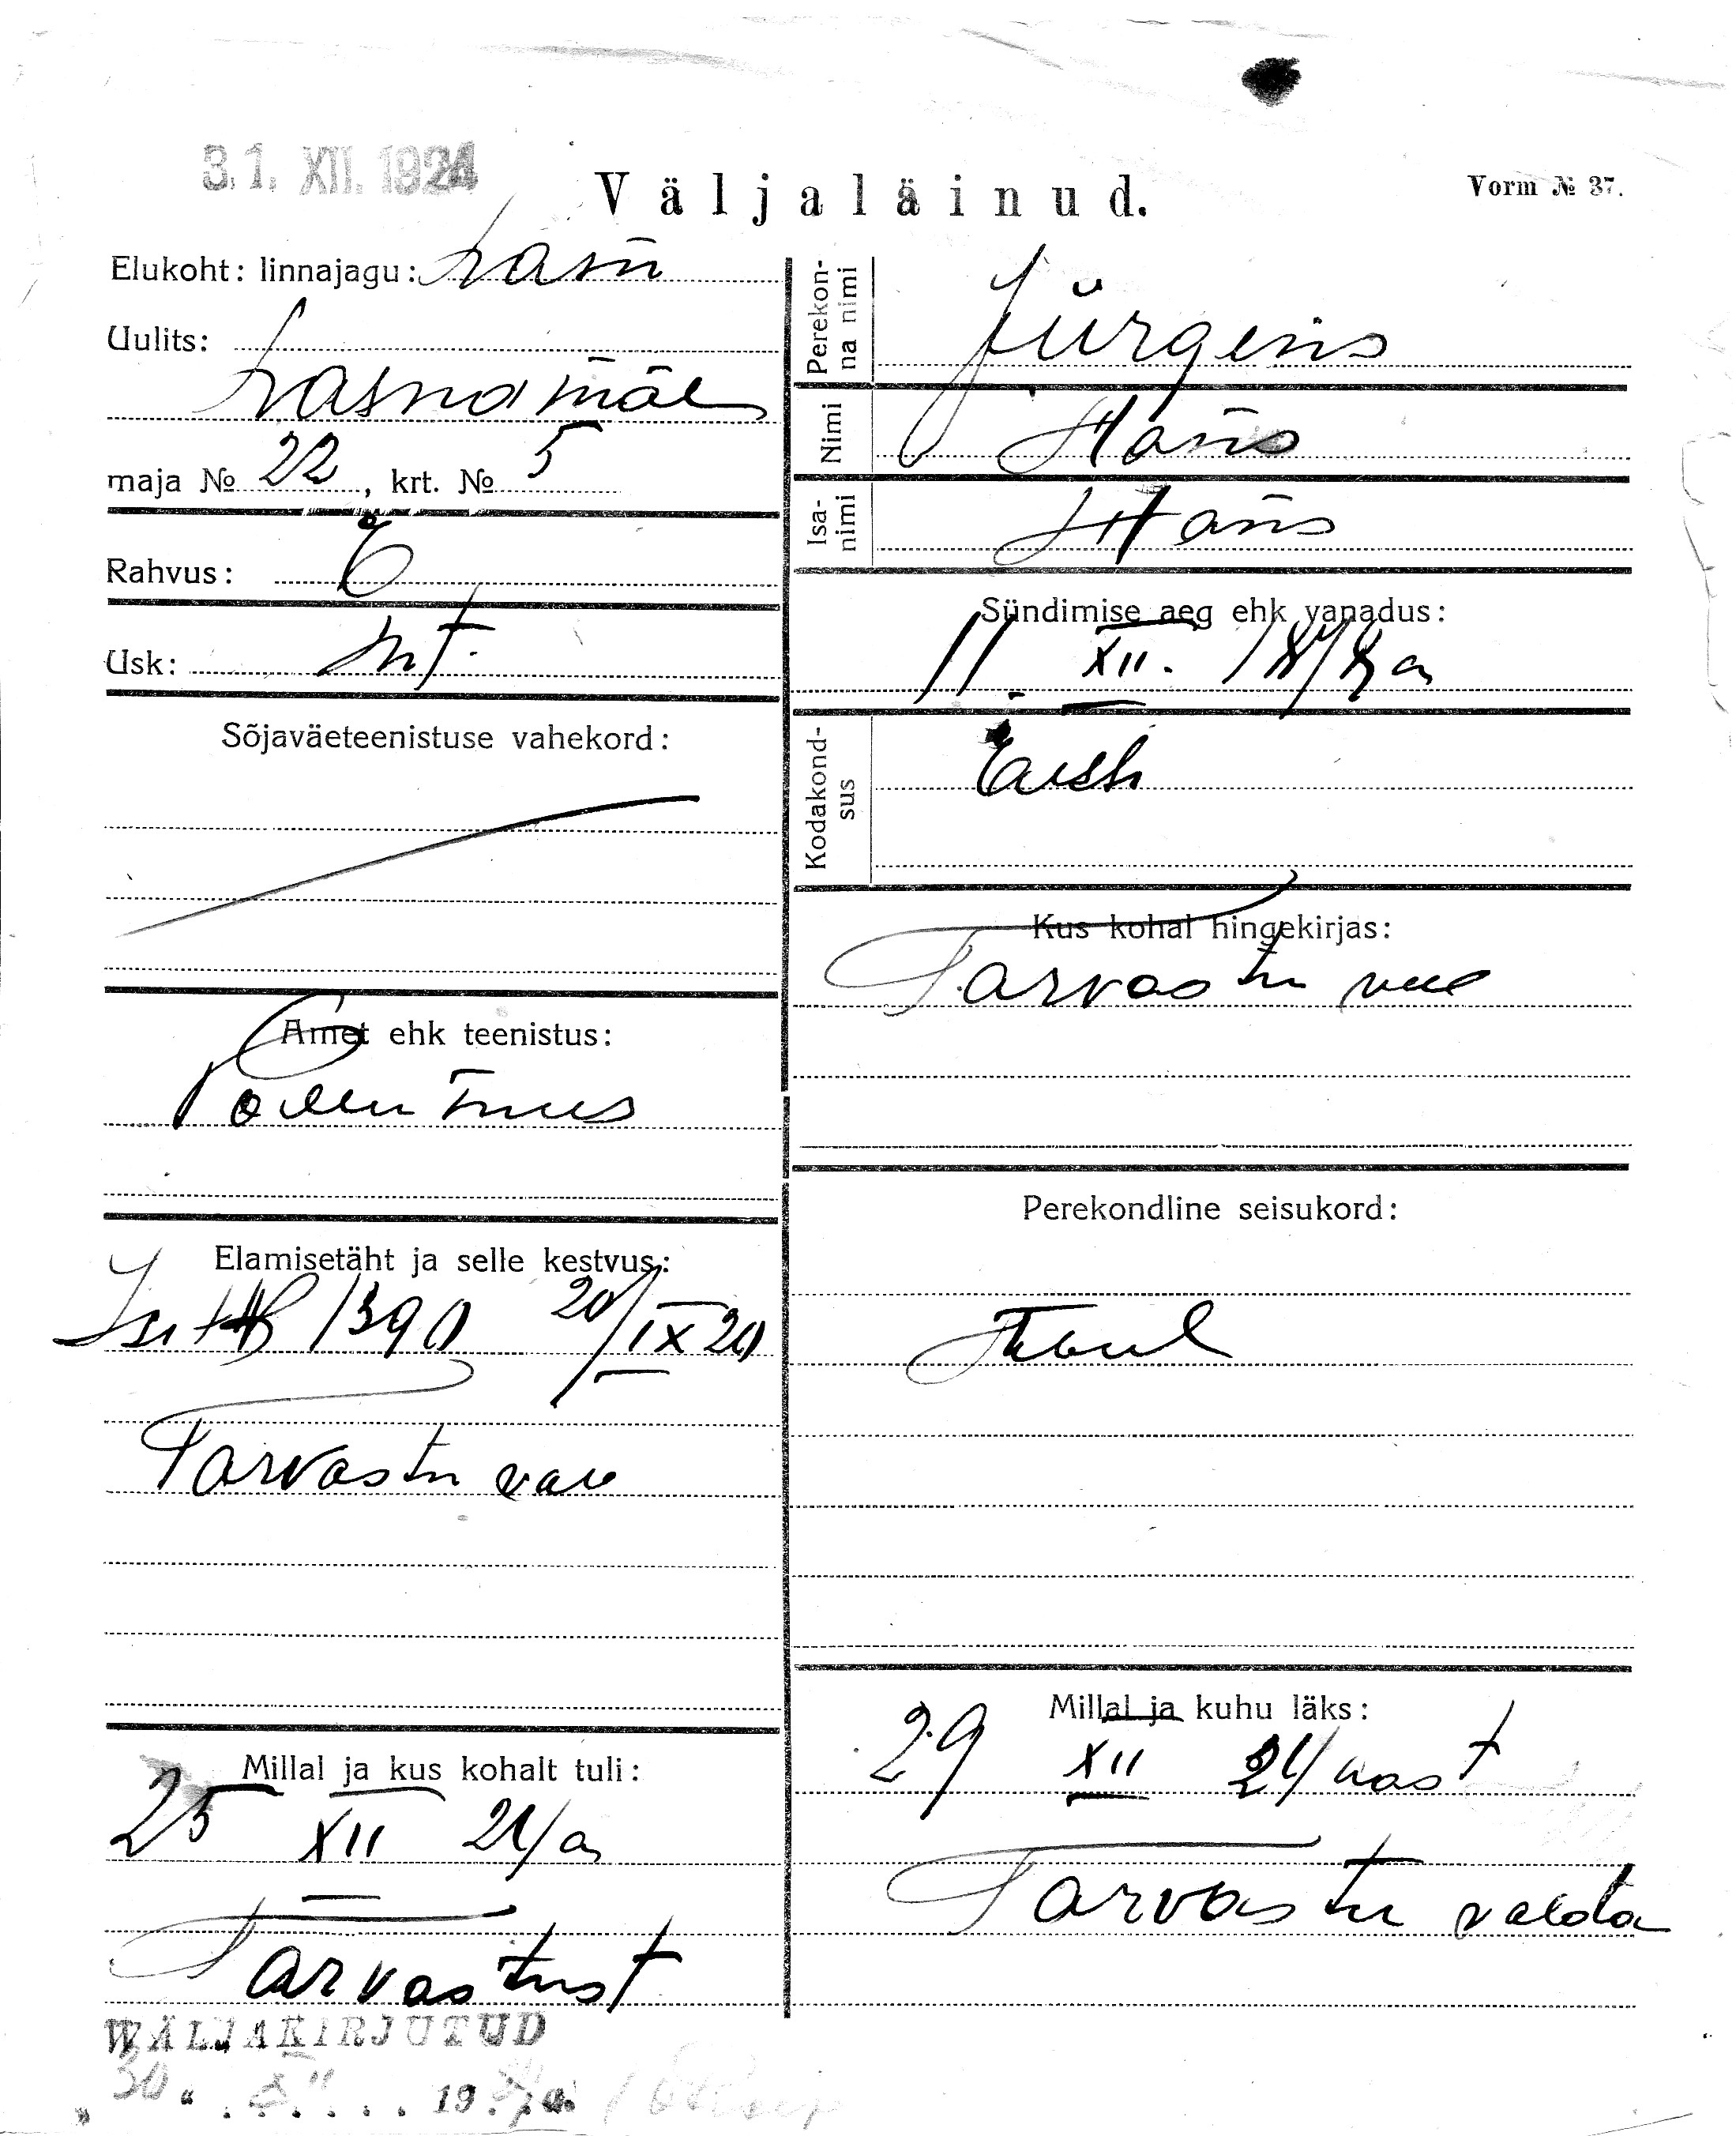 31. XII. 1924
Väljaläinud.
Vorm № 37.
Elukoht: linnajagu:
Uulits:
Lasnamäe
maja № 22, krt. № 5
Rahvus: E
Usk:
Sõjaväeteenistuse vahekord:
Amet ehk teenistus:
Põllumees
Elamisetäht ja selle kestvus:
1390 20/IX 20
Tarvastu
Millal ja kus kohalt tuli:
25 XII 24/a
Tarvastust
WÄLJAKIRJUTUD
"30" XII 19
Perekon-
na nimi
Jürgens
Nimi
Hans
Isa-
nimi
Hans
Sündimise aeg ehk vanadus:
11. XII.
Kodakond-
sus
Eesti
Kus kohal hingekirjas:
Tarvastu
Perekondline seisukord:
Millal ja kuhu läks:
29 XII 24
Tarvastu valda